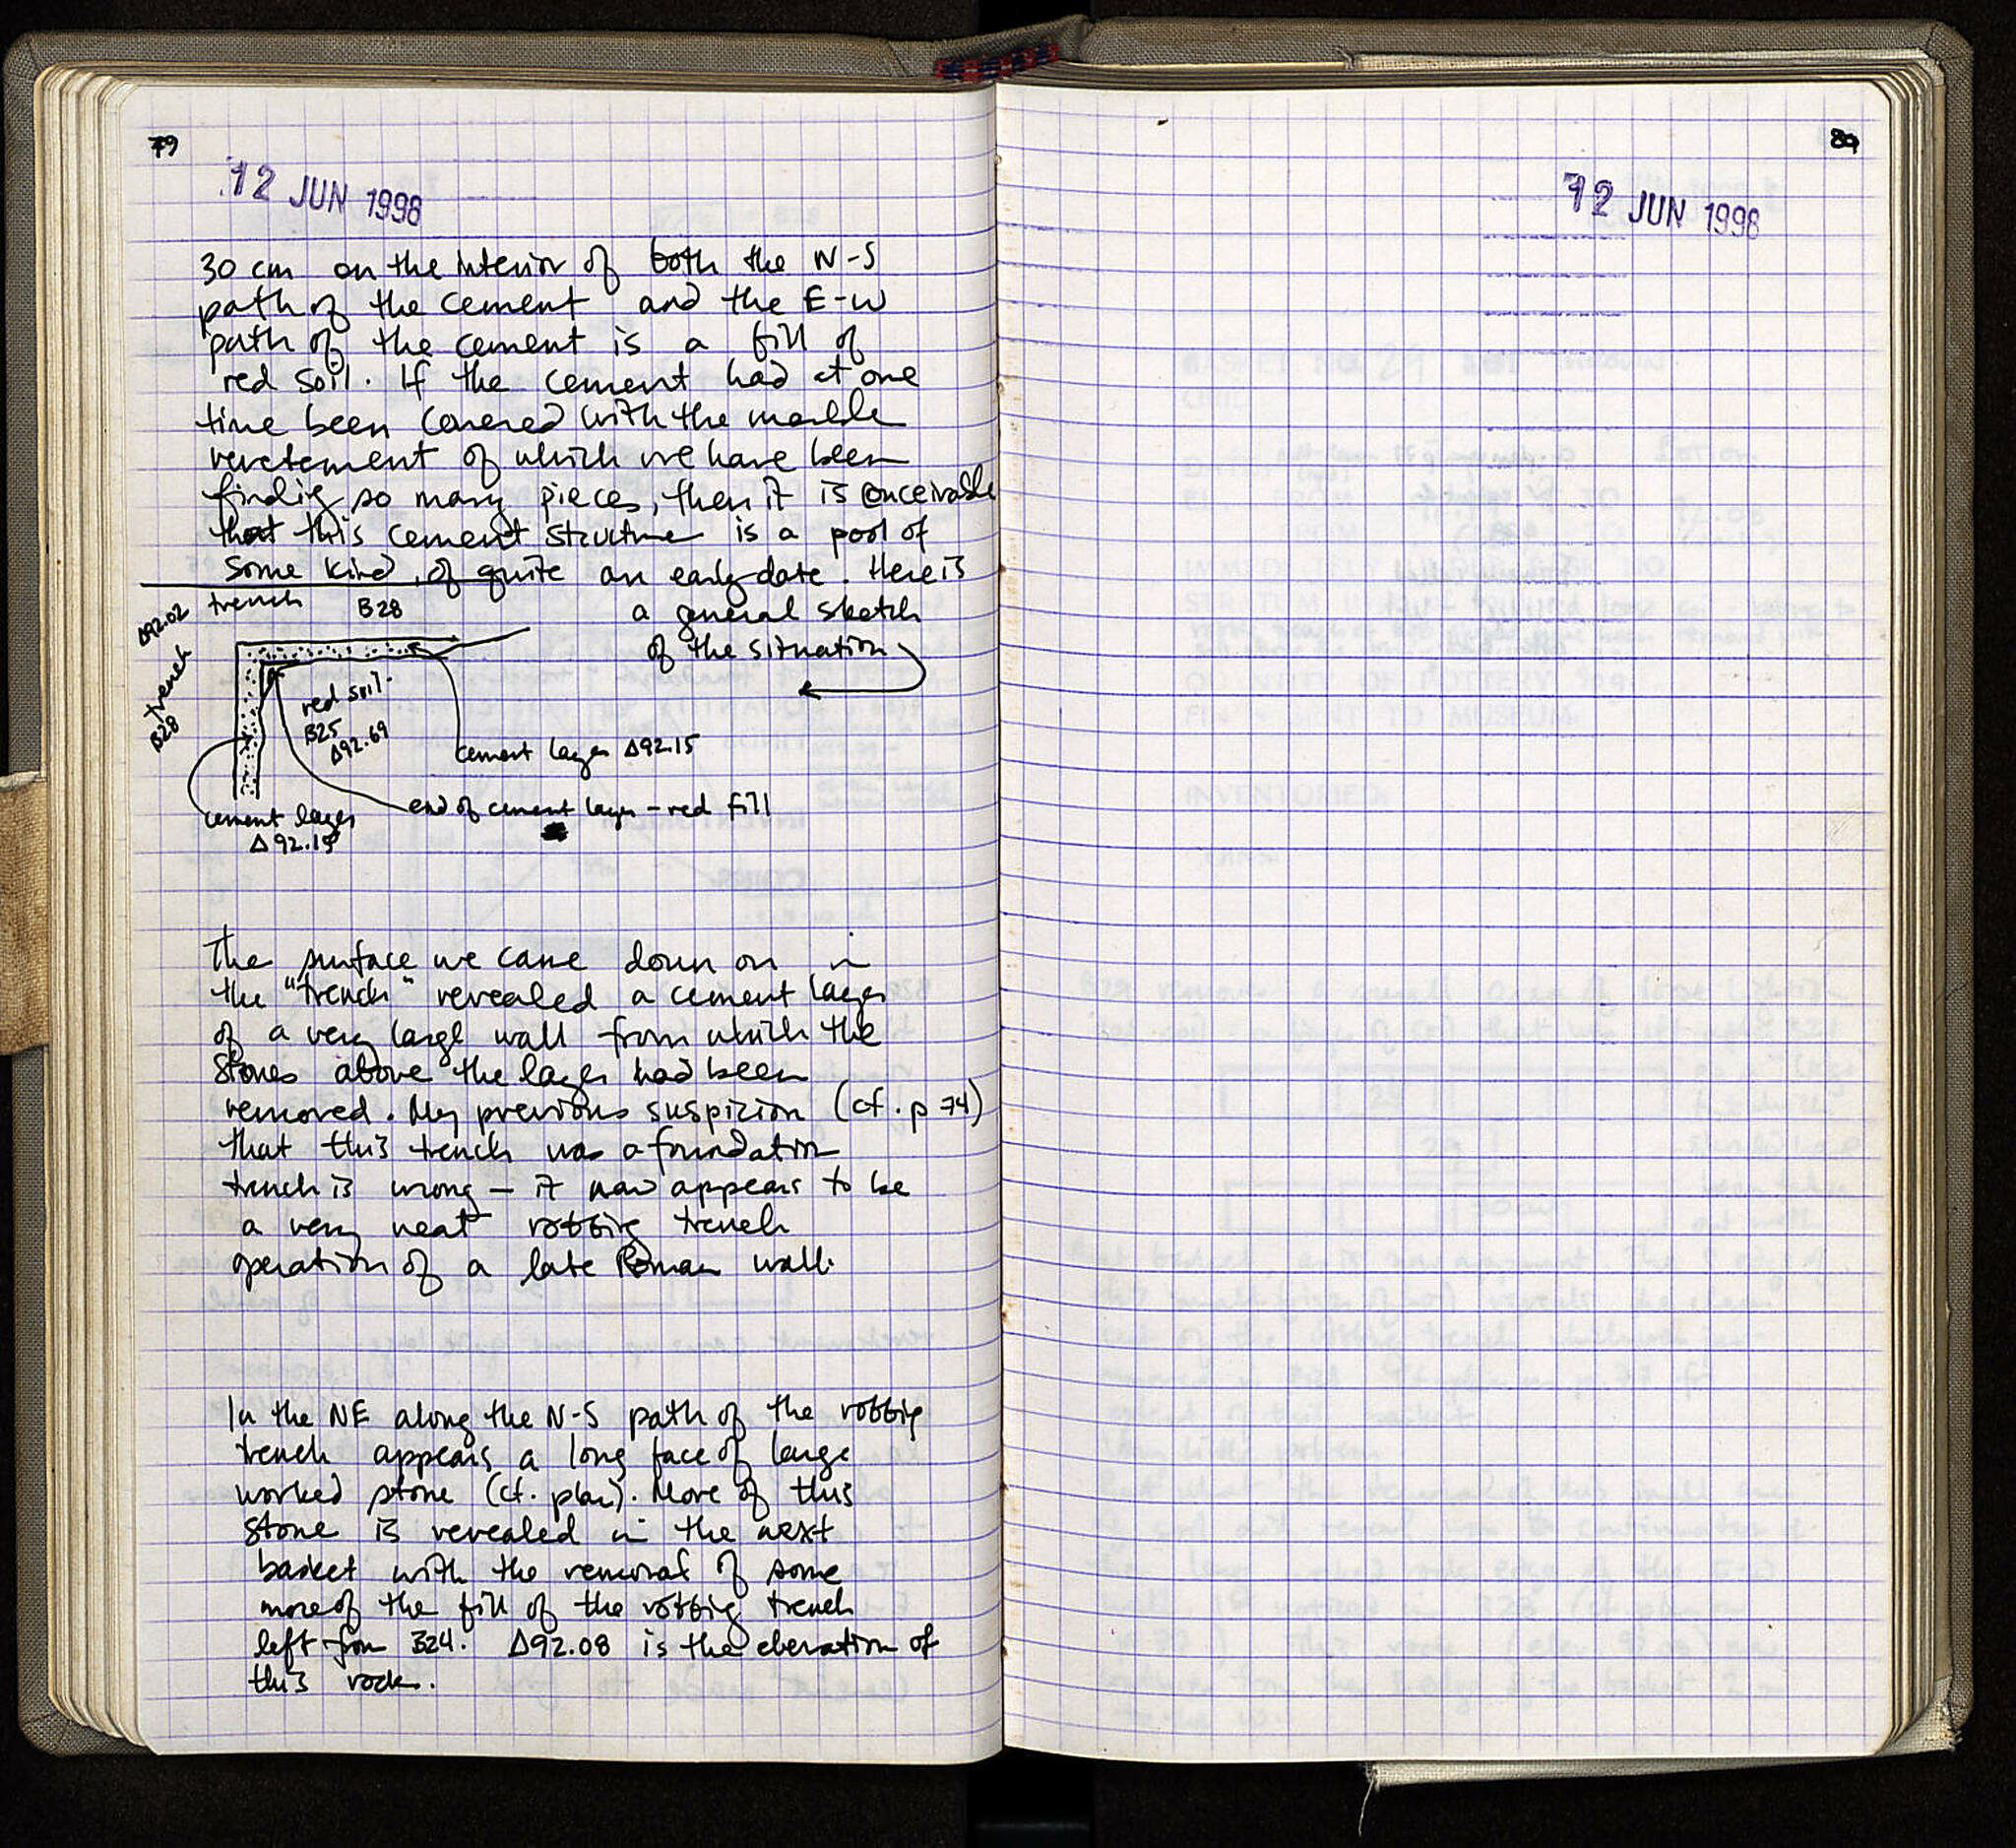 79
12 JUN 1998
30 cm on the interior of both the N-S
path of the cement and the E-W
path of the cement is a fill of
red soil. If the cement had at one
time been covered with the marble
revetement of which we have been
findig so many pieces, then it is conceivable
that this cement structure is a pool of
some kind, of quite an early date. Here is
a general sketch
of the situation
trench B28
Δ92.02
trench
B28
red soil.
B25
Δ92.69
cement layer Δ92.15
end of cement layer - red fill
cement layer
Δ92.15
The surface we came down on in
the "trench" revealed a cement layer
of a very large wall from which the
stones above the layer had been
removed. My previous suspicion (cf. p 74)
that this trench was a foundation
trench is wrong - it now appears to be
a very neat robbing trench
operation of a late Roman wall.
In the NE along the N-S path of the robbing
trench appears a long face of large
worked stone (cf. plan). More of this
stone is revealed in the next
basket with the removal of some
more of the fill of the robbing trench
left from B24. Δ92.08 is the elevation of
this rock.
80
12 JUN 1998